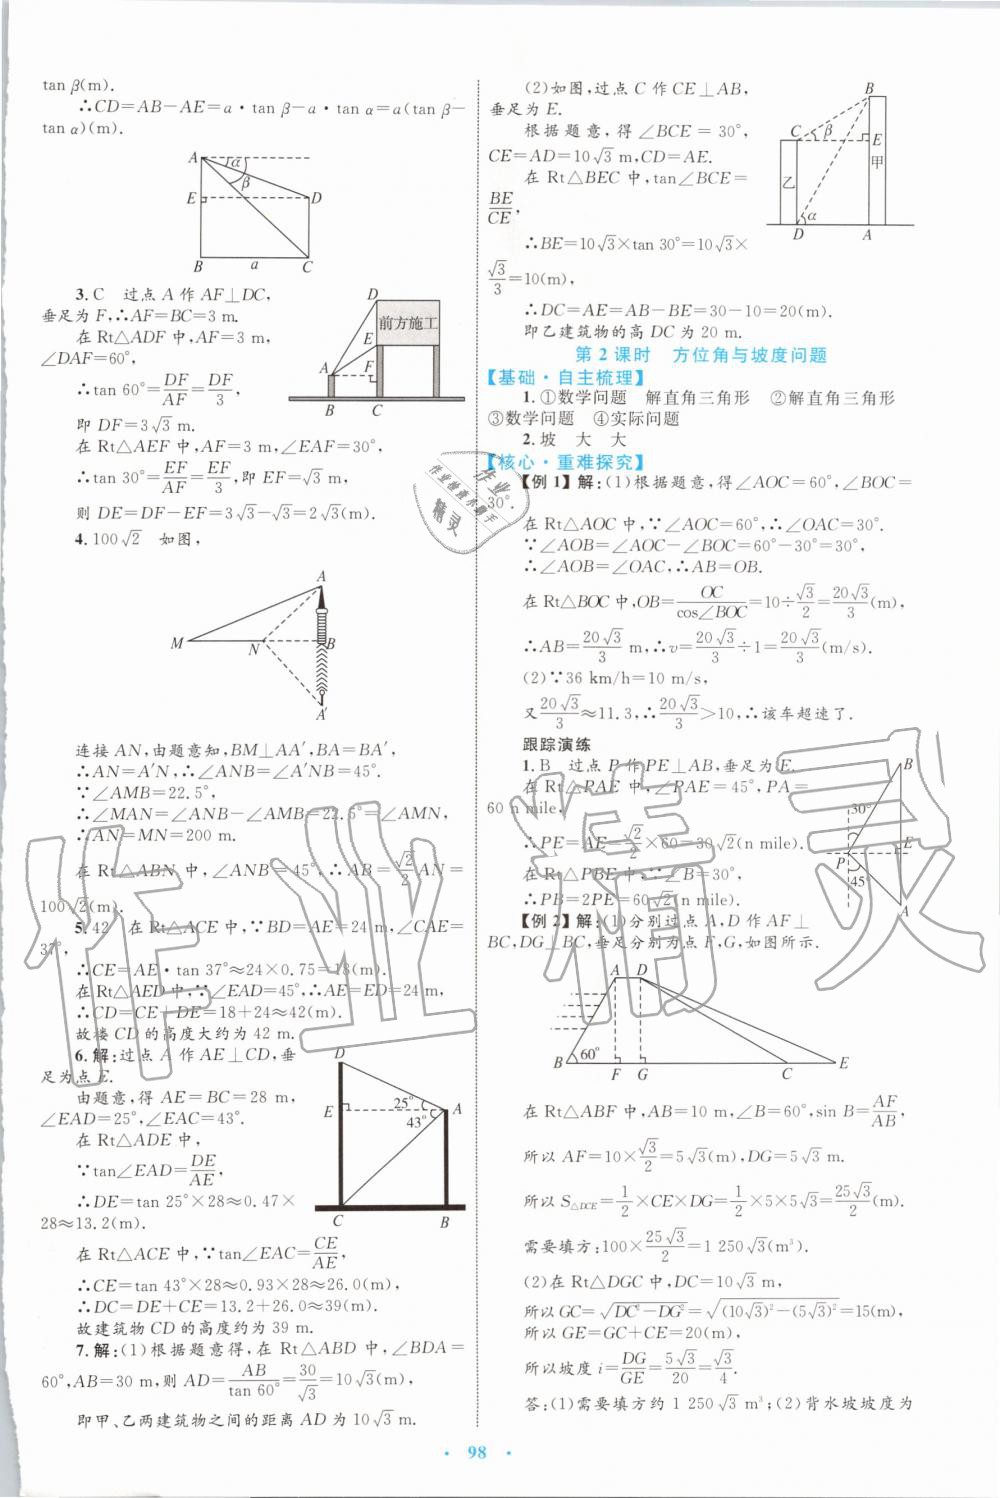 tan β(m).
∴CD=AB−AE=a·tan β−a·tan α=a(tan β−
tan α)(m).
A
α
β
E
D
B
a
C
3.C 过点 A 作 AF⊥DC,
垂足为 F,∴AF=BC=3 m.
在 Rt△ADF 中,AF=3 m,
∠DAF=60°,
∴tan 60°=DF/AF=DF/3,
即 DF=3√3 m.
在 Rt△AEF 中,AF=3 m,∠EAF=30°,
∴tan 30°=EF/AF=EF/3,即 EF=√3 m.
则 DE=DF−EF=3√3−√3=2√3(m).
D
前方施工
E
A
F
B
C
4.100√2 如图,
A
M
N
B
A′
连接 AN,由题意知,BM⊥AA′,BA=BA′,
∴AN=A′N,∴∠ANB=∠A′NB=45°.
∵∠AMB=22.5°,
∴∠MAN=∠ANB−∠AMB=22.5°=∠AMN,
∴AN=MN=200 m.
在 Rt△ABN 中,∠ANB=45°,∴AB=√2/2 AN=
100√2(m).
5.42 在 Rt△ACE 中,∵BD=AE=24 m,∠CAE=
37°,
∴CE=AE·tan 37°≈24×0.75=18(m).
在 Rt△AED 中,∵∠EAD=45°,∴AE=ED=24 m,
∴CD=CE+DE=18+24≈42(m).
故楼 CD 的高度大约为 42 m.
6.解:过点 A 作 AE⊥CD,垂
足为点 E.
由题意,得 AE=BC=28 m,
∠EAD=25°,∠EAC=43°.
在 Rt△ADE 中,
∵tan∠EAD=DE/AE,
∴DE=tan 25°×28≈0.47×
28≈13.2(m).
D
25°
E
A
43°
C
B
在 Rt△ACE 中,∵tan∠EAC=CE/AE,
∴CE=tan 43°×28≈0.93×28≈26.0(m),
∴DC=DE+CE=13.2+26.0≈39(m).
故建筑物 CD 的高度约为 39 m.
7.解:(1)根据题意得,在 Rt△ABD 中,∠BDA=
60°,AB=30 m,则 AD=AB/tan 60°=30/√3=10√3(m),
即甲、乙两建筑物之间的距离 AD 为 10√3 m.
(2)如图,过点 C 作 CE⊥AB,
垂足为 E.
根据题意,得∠BCE=30°,
CE=AD=10√3 m,CD=AE.
在 Rt△BEC 中,tan∠BCE=
BE/CE,
∴BE=10√3×tan 30°=10√3×
√3/3=10(m),
∴DC=AE=AB−BE=30−10=20(m).
即乙建筑物的高 DC 为 20 m.
B
C
β
E
甲
乙
α
D
A
第 2 课时 方位角与坡度问题
【基础·自主梳理】
1.①数学问题 解直角三角形 ②解直角三角形
③数学问题 ④实际问题
2.坡 大 大
【核心·重难探究】
【例 1】解:(1)根据题意,得∠AOC=60°,∠BOC=
30°.
在 Rt△AOC 中,∵∠AOC=60°,∴∠OAC=30°.
∵∠AOB=∠AOC−∠BOC=60°−30°=30°,
∴∠AOB=∠OAC,∴AB=OB.
在 Rt△BOC 中,OB=OC/cos∠BOC=10÷√3/2=20√3/3(m),
∴AB=20√3/3 m,∴v=20√3/3÷1=20√3/3(m/s).
(2)∵36 km/h=10 m/s,
又20√3/3≈11.3,∴20√3/3>10,∴该车超速了.
跟踪演练
1.B 过点 P 作 PE⊥AB,垂足为 E.
在 Rt△PAE 中,∠PAE=45°,PA=
60 n mile,
∴PE=AE=√2/2×60=30√2(n mile).
在 Rt△PBE 中,∵∠B=30°,
∴PB=2PE=60√2(n mile).
B
30°
E
P
45°
A
【例 2】解:(1)分别过点 A,D 作 AF⊥
BC,DG⊥BC,垂足分别为点 F,G,如图所示.
A
D
B
60°
F
G
C
E
在 Rt△ABF 中,AB=10 m,∠B=60°,sin B=AF/AB,
所以 AF=10×√3/2=5√3(m),DG=5√3 m.
所以 S△DCE=1/2×CE×DG=1/2×5×5√3=25√3/2(m).
需要填方:100×25√3/2=1 250√3(m³).
(2)在 Rt△DGC 中,DC=10√3 m,
所以 GC=√(DC²−DG²)=√((10√3)²−(5√3)²)=15(m),
所以 GE=GC+CE=20(m),
所以坡度 i=DG/GE=5√3/20=√3/4.
答:(1)需要填方约 1 250√3 m³;(2)背水坡坡度为
· 98 ·
作业精灵